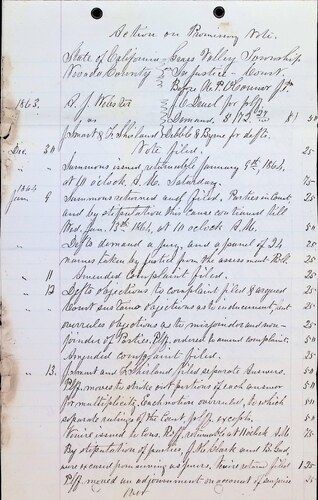 Action on Promissory Note.
State of California Grass Valley Township
Nevada County In Justice Court
Before A. P. O'Connor J.P.
1863. A. J. Webster J. C. Deuel for plff
vs Demand $172 50
Smart & Shirland Dibble & Byrne for defts.
Dec. 30 Note filed. 25
" " Summons issued, returnable January 9th, 1864,
at 10 o'clock A.M. Saturday. 75
1864
Jan. 9 Summons returned and filed. Parties in Court
and by stipulation this cause continued till
Wed. Jan. 13th 1864, at 10 o'clock A.M. 50
" " Defts demand a jury, and a panel of 24
names taken by justice from the assessment Roll. 25
" 11 Amended Complaint filed. 25
" 12 Defts objections to complaint filed & argued 25
Court sustains objections as to inducement, but
overrules objections as to misjoinder and non-
joinder of Parties. Plff. ordered to amend complaint. 50
Amended complaint filed. 25
" 13. Smart and Shirland filed separate answers. 50
Plff. moves to strike out portions of each answer
for multiplicity. Each motion overruled, to which
separate rulings of the Court, plff. excepts. 50
Venire issued to Cons. Roff, returnable at 10 o'clock A.M. 75
By stipulation of parties, J. M. Black and
were excused from serving as jurors. Venire returned filed 125
Plff. moved an adjournment on account of